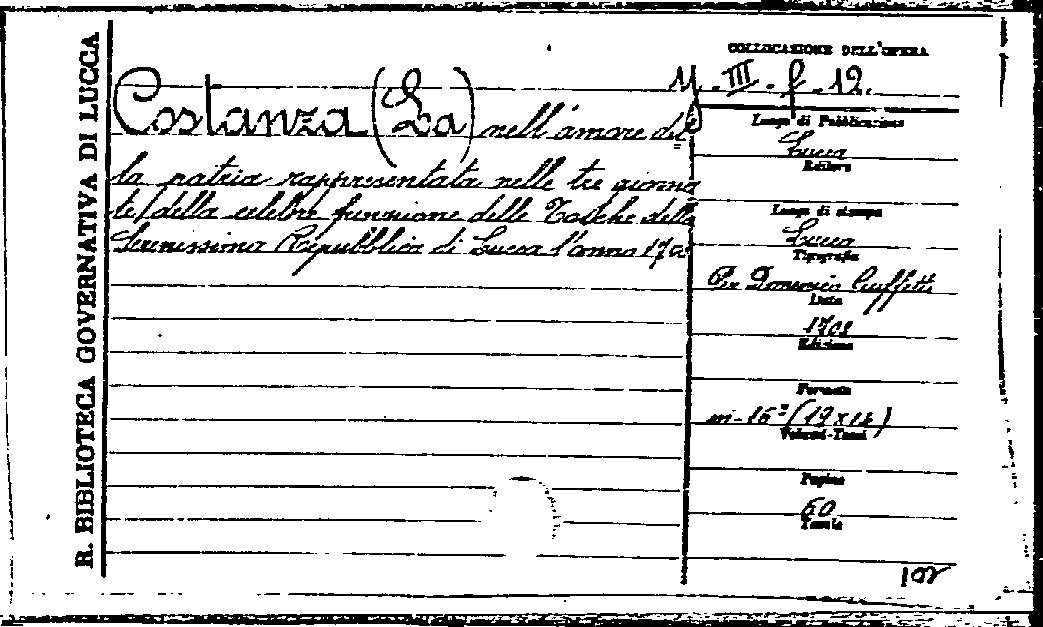 R. BIBLIOTECA GOVERNATIVA DI LUCCA
Costanza (La) nell'amore del
la patria rappresentata nelle tre giorna
te / della celebre funzione delle Tasche della
Serenissima Repubblica di Lucca l'anno 1702
COLLOCAZIONE DELL'OPERA
III - f. 12.
Luogo di Pubblicazione
Lucca
Editore
Luogo di stampa
Lucca
Tipografia
Per Domenico Ciuffetti
Data
1702
Edizione
Formato
in-16° (19 x 14)
Volumi-Tomi
Pagine
60
Tavole